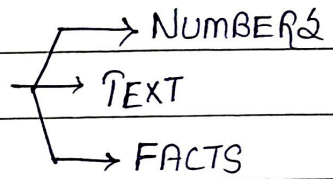 NUMBERS
TEXT
FACTS